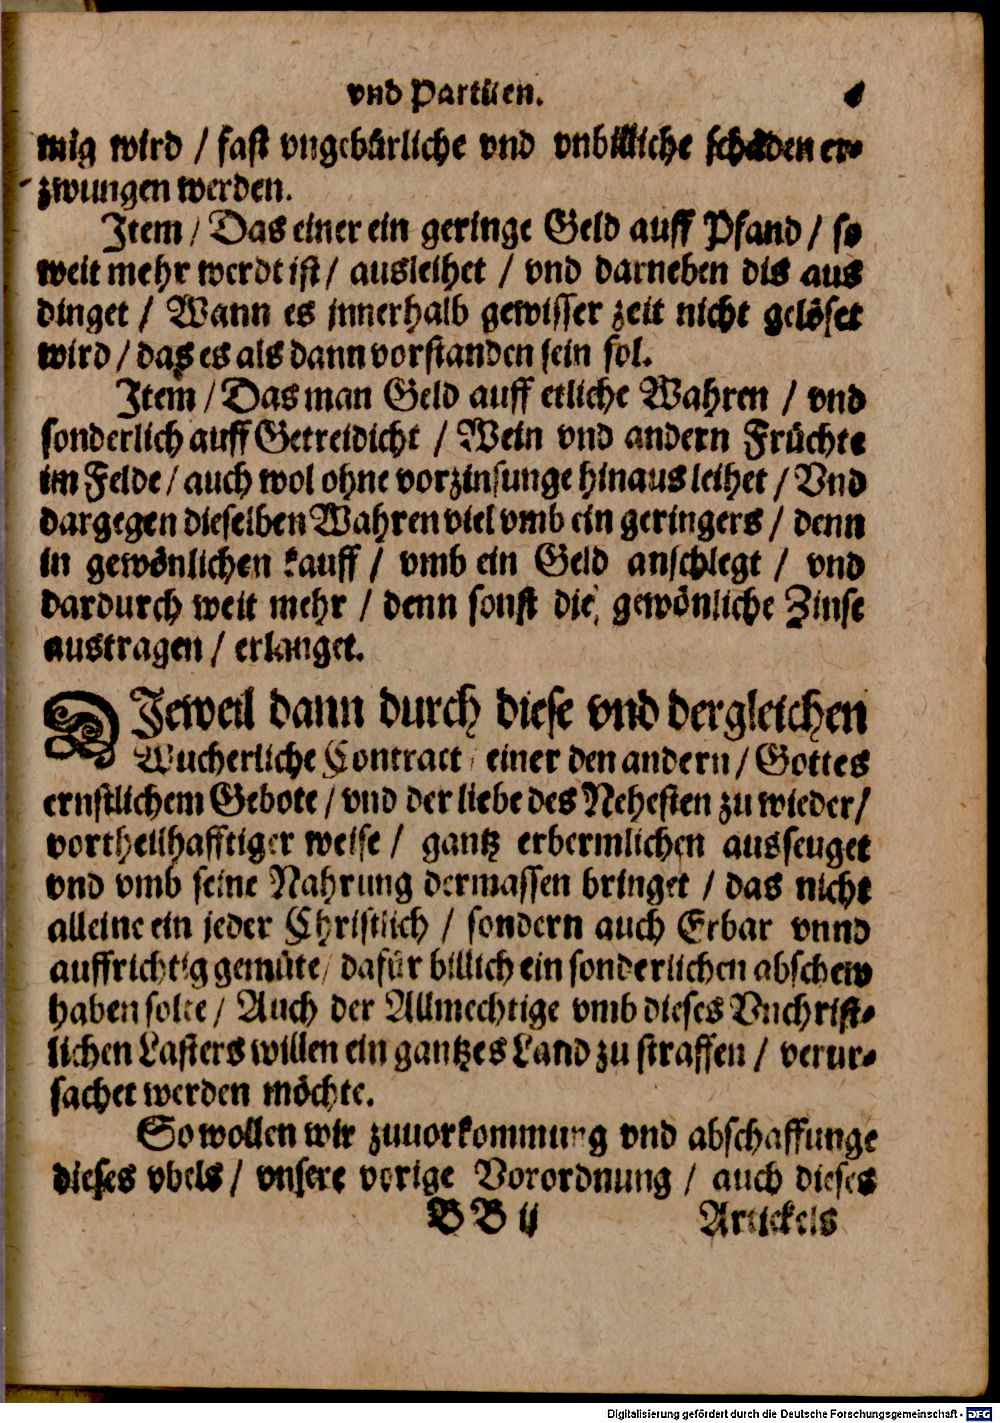 vnd Partiien.
mig wird / fast vngebürliche vnd vnbilliche schäden er-
zwungen werden.
Item / Das einer ein geringe Geld auff Pfand / so
weit mehr werdt ist / ausleihet / vnd darneben dis aus
dinget / Wann es jnnerhalb gewisser zeit nicht gelöset
wird / das es als dann vorstanden sein sol.
Item / Das man Geld auff etliche Wahren / vnd
sonderlich auff Getreidicht / Wein vnd andern Früchte
im Felde / auch wol ohne vorzinsunge hinaus leihet / Vnd
dargegen dieselben Wahren viel vmb ein geringers / denn
in gewönlichen kauff / vmb ein Geld anschlegt / vnd
dardurch weit mehr / denn sonst die gewönliche Zinse
austragen / erlanget.
DJeweil dann durch diese vnd dergleichen
Wucherliche Contract / einer den andern / Gottes
ernstlichem Gebote / vnd der liebe des Nehesten zu wieder /
vortheilhafftiger weise / gantz erbermlichenausseuget
vnd vmb seine Nahrung dermassen bringet / das nicht
alleine ein jeder Christlich / sondern auch Erbar vnnd
auffrichtig gemüte / dafür billich ein sonderlichen abschew
haben solte / Auch der Allmechtige vmb dieses Vnchrist-
lichen Lasters willen ein gantzes Land zu straffen / verur-
sachet werden möchte.
So wollen wir zuuorkommung vnd abschaffunge
dieses vbels / vnsere vorige Vorordnung / auch dieses
BB ij Artickels
Digitalisierung gefördert durch die Deutsche Forschungsgemeinschaft - DFG